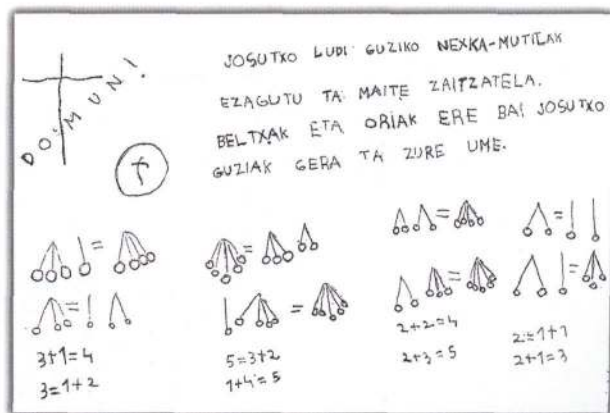 DO-MUN!
JOSUTXO LUDI GUZIKO NEXKA-MUTILAK
EZAGUTU TA MAITE ZAITZATELA.
BELTXAK ETA ORIAK ERE BAI JOSUTXO
GUZIAK GERA TA ZURE UME.
=
=
=
=
=
=
=
=
3+1=4
3=1+2
5=3+2
1+4=5
2+2=4
2+3=5
2=1+1
2+1=3